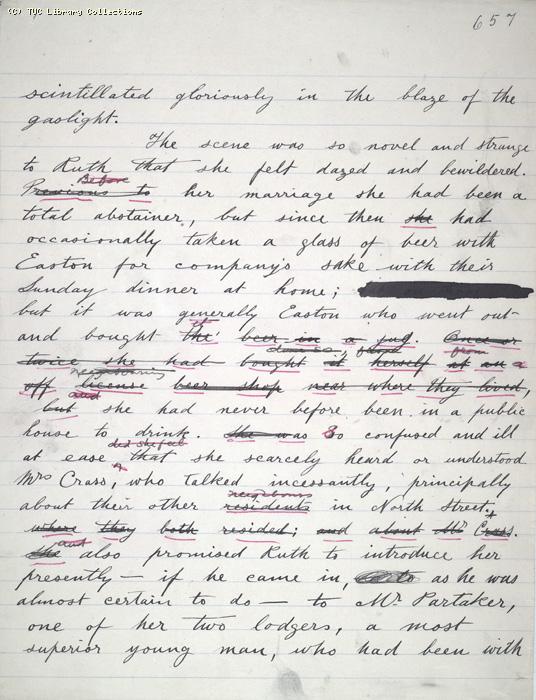 (C) TUC Library Collections
657
scintillated gloriously in the blaze of the
gaslight.
The scene was so novel and strange
to Ruth that she felt dazed and bewildered.
Before
Previous to her marriage she had been a
total abstainer, but since then she had
occasionally taken a glass of beer with
Easton for company's sake with their
Sunday dinner at home;
but it was generally Easton who went out
and bought the beer in a jug. Once or
twice she had bought it herself at an
from a
neighbouring
off license beer shop near where they lived,
and
but she had never before been in a public
house to drink. She was So confused and ill
did she feel
at ease that she scarcely heard or understood
Mrs Crass, who talked incessantly, principally
neighbours
about their other residents in North Street,
where they both resided; and about Mr Crass.
and
She also promised Ruth to introduce her
presently — if he came in, as he was
almost certain to do — to Mr Partaker,
one of her two lodgers, a most
superior young man, who had been with